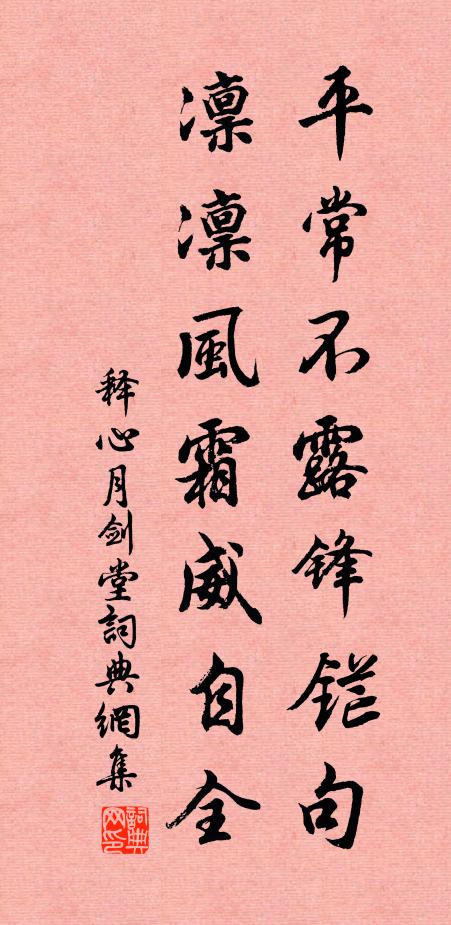 平常不露鋒鋩句
凛凛風霜威自全
释心月剑堂詞典網集
詞典网印